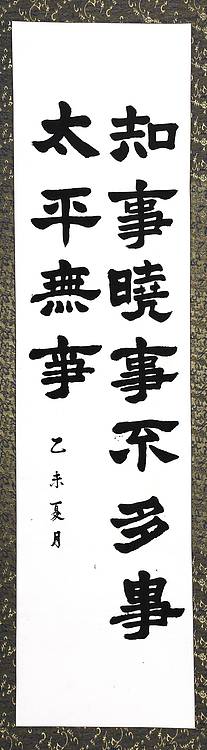 知事曉事不多事
太平無事
乙未夏月